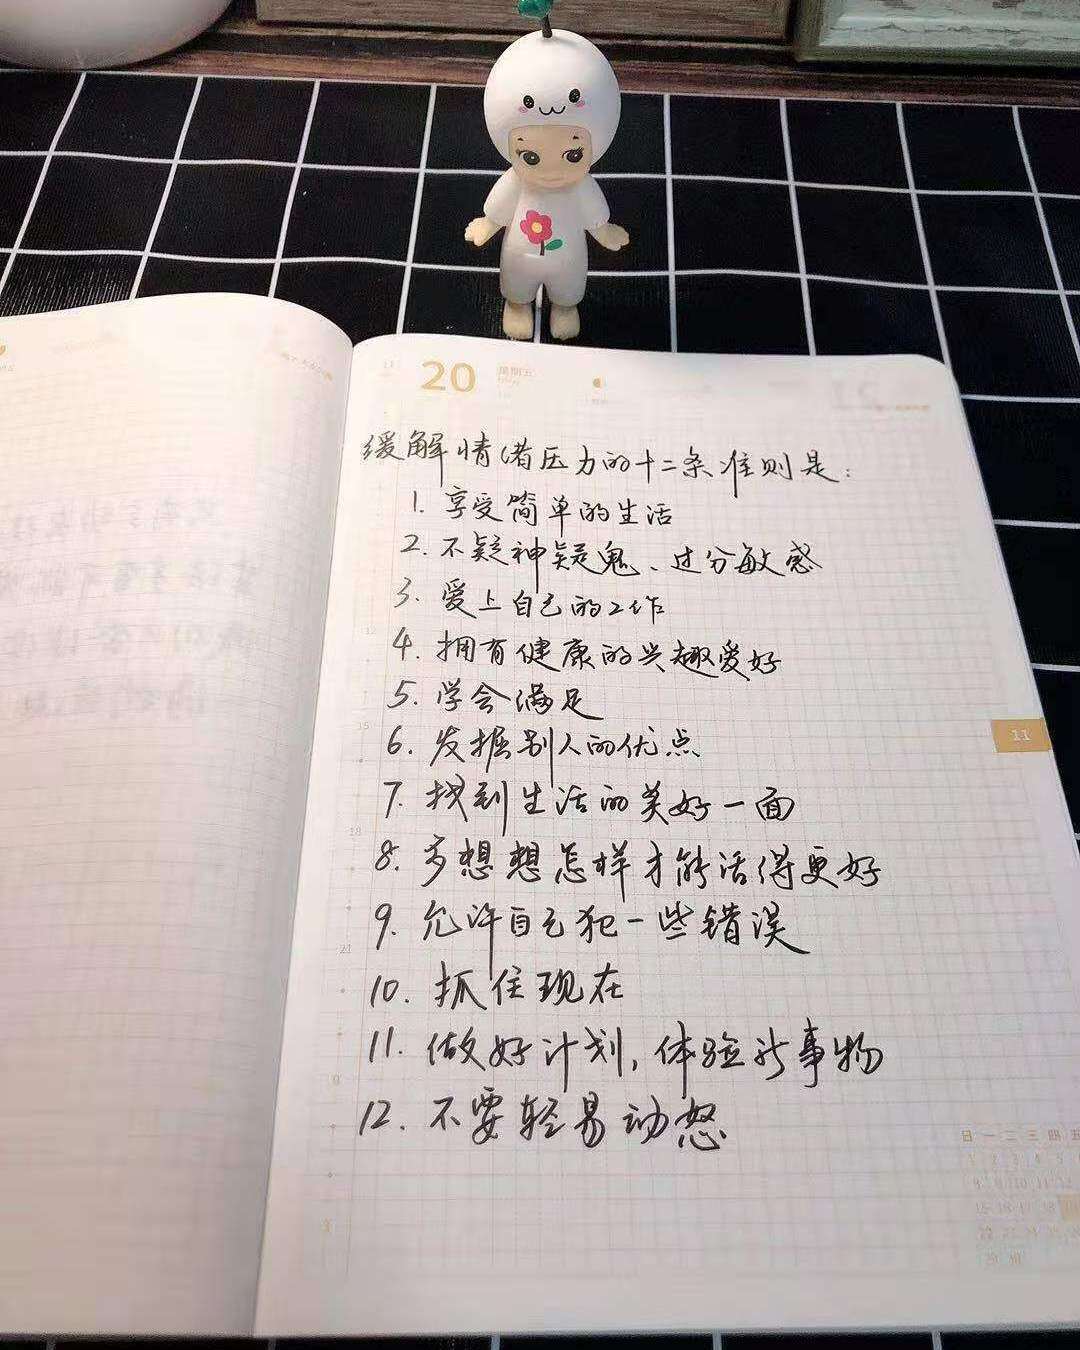 20 星期五
缓解情绪压力的十二条准则是:
1. 享受简单的生活
2. 不疑神疑鬼、过分敏感
3. 爱上自己的工作
4. 拥有健康的兴趣爱好
5. 学会满足
6. 发掘别人的优点
11
7. 找到生活的美好一面
8. 多想想怎样才能活得更好
9. 允许自己犯一些错误
10. 抓住现在
11. 做好计划,体验新事物
12. 不要轻易动怒